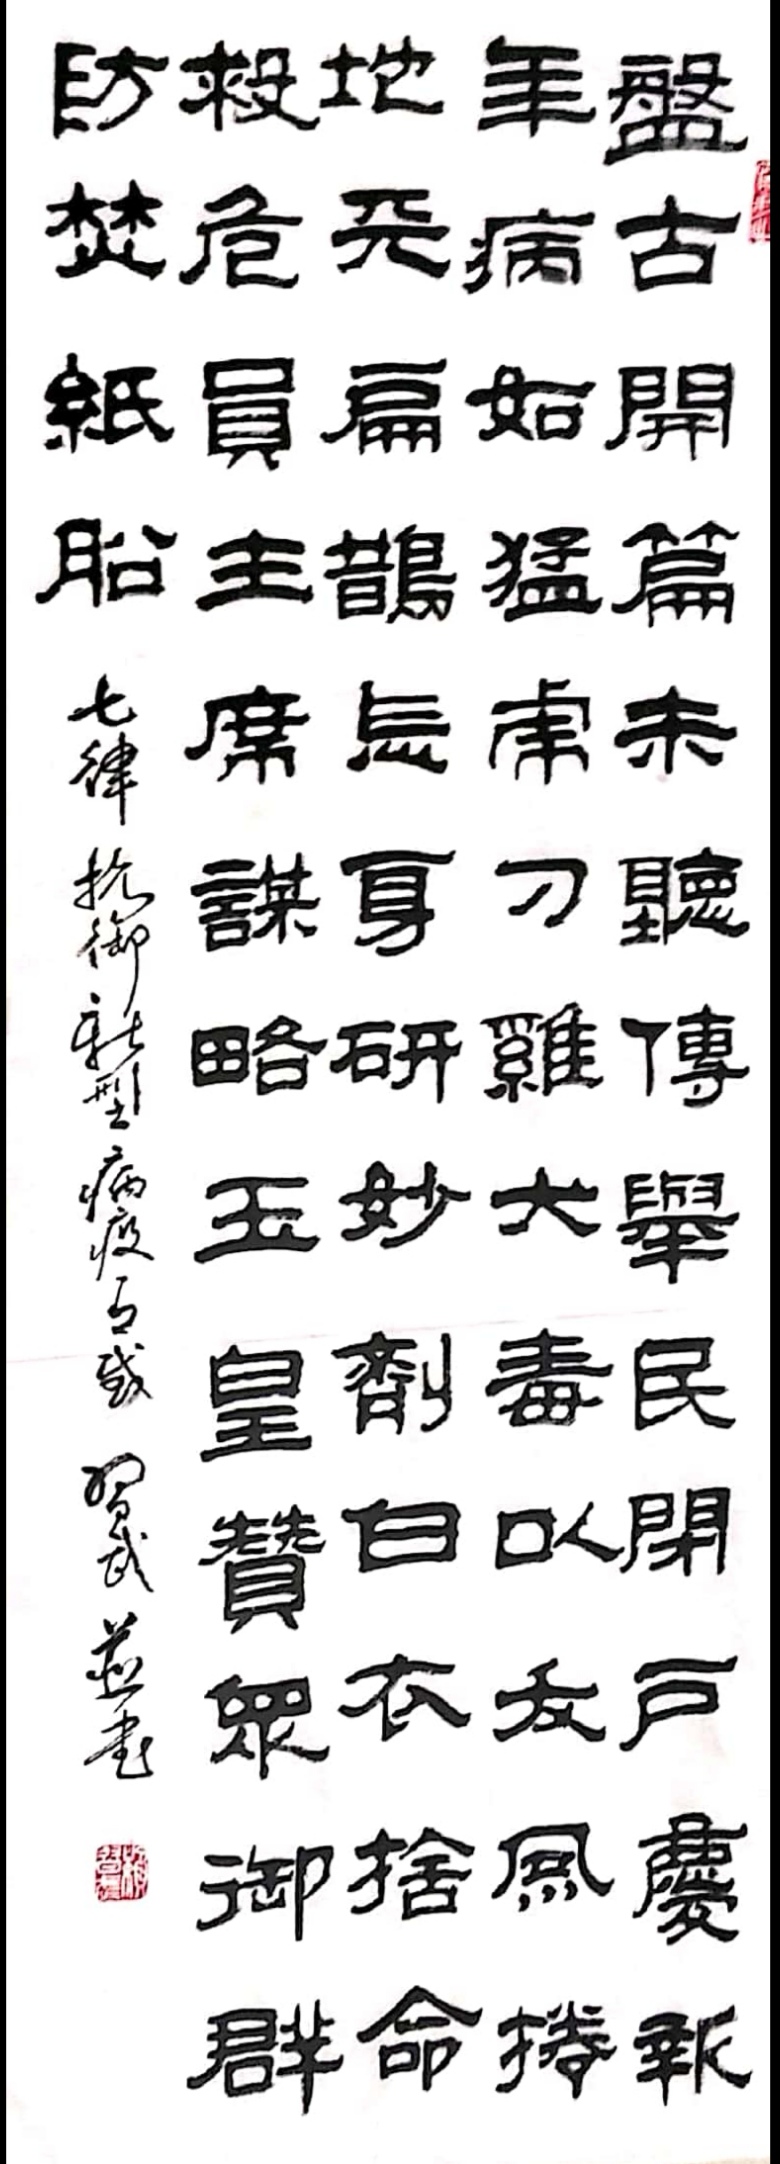 盤古開篇未聽傳舉民閉戶慶新
年病如猛虎刀雞犬毒以友風捲
地天扁鵲忘身研妙劑白衣捨命
救危員主席謀略玉皇贊眾御群
防焚紙船
七律 抗御新型病疫有感 習武並書